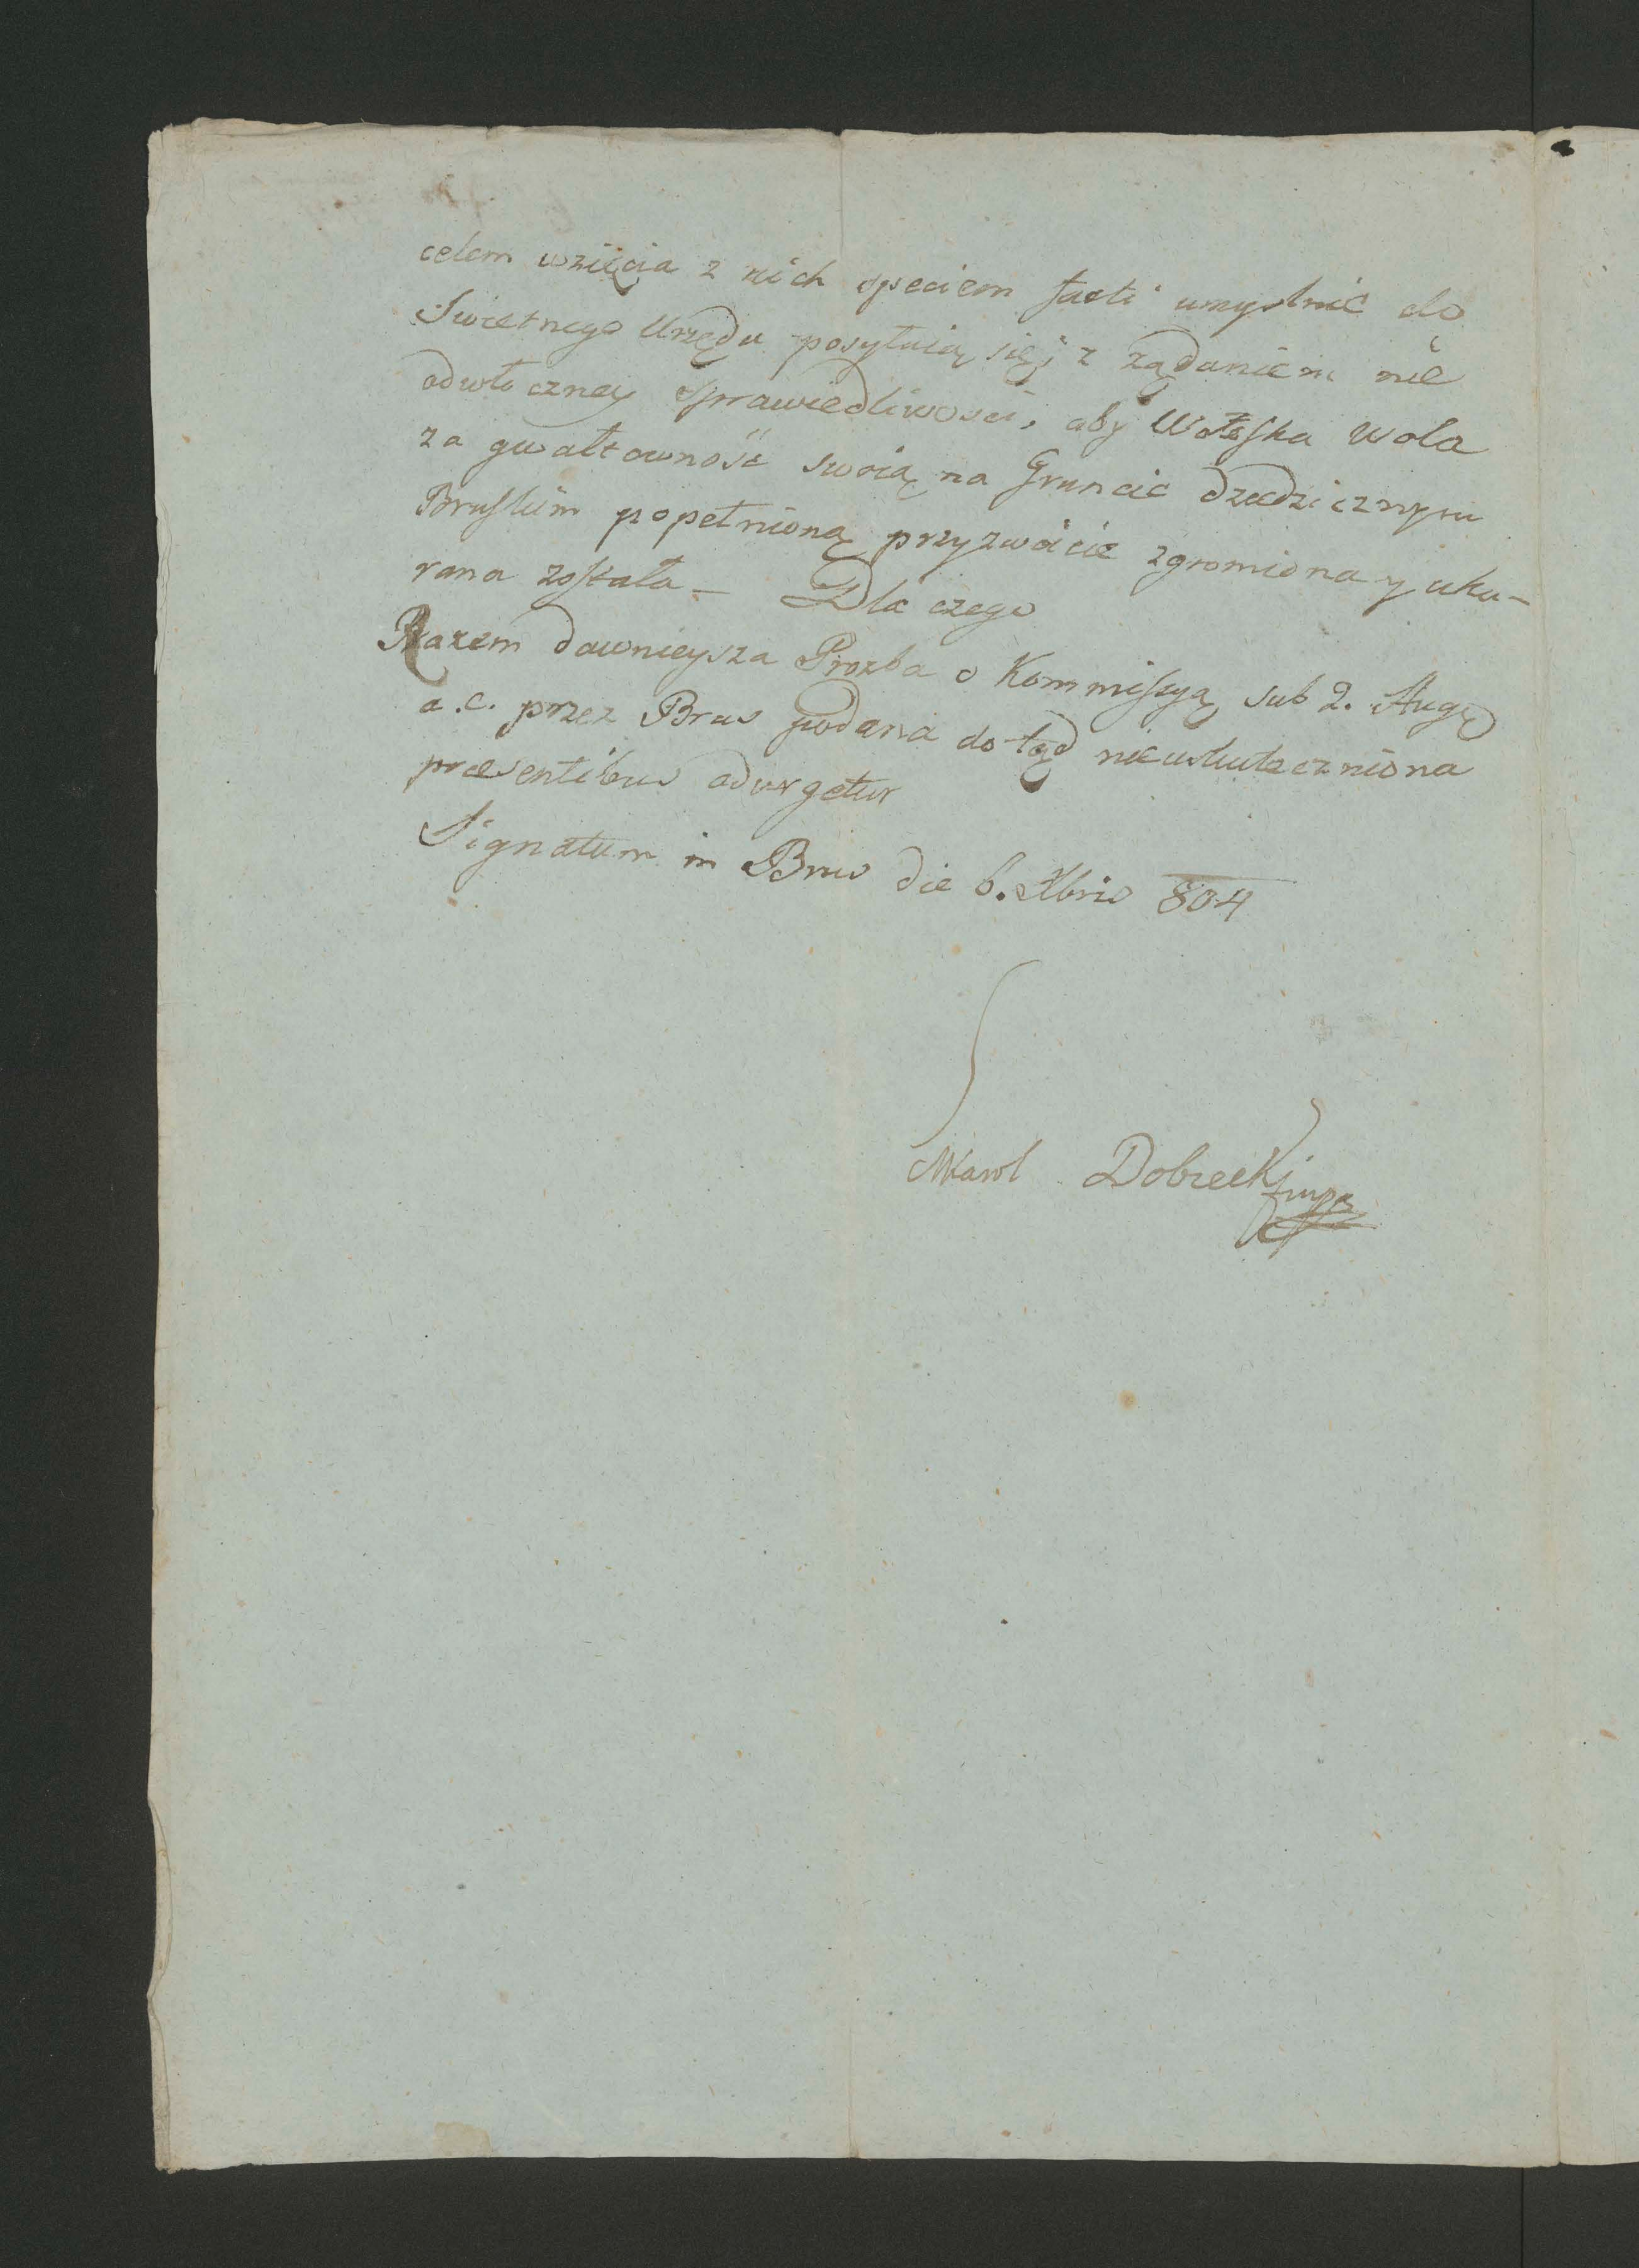 celem wzięcia z nich speciem facti umyslnie do
Swietnego Urzędu posyłaią się, z rządaniem nie
odwłoczney sprawiedliwosci, aby Wołoska Wola
za gwałtowność swoią na Gruncie dziedzicznym
Bruskim popełnioną przyzwoicie zgromiona y uka-
rana została - Dla czego
Razem dawnieysza Prozba o Kommissyą sub 2. Aug
a. c. przez Brus podana do tąd nieuskuteczniona
præsentibus adurgetur
Signatum in Brus die 6. Xbris 804
Karol Dobrecki mp